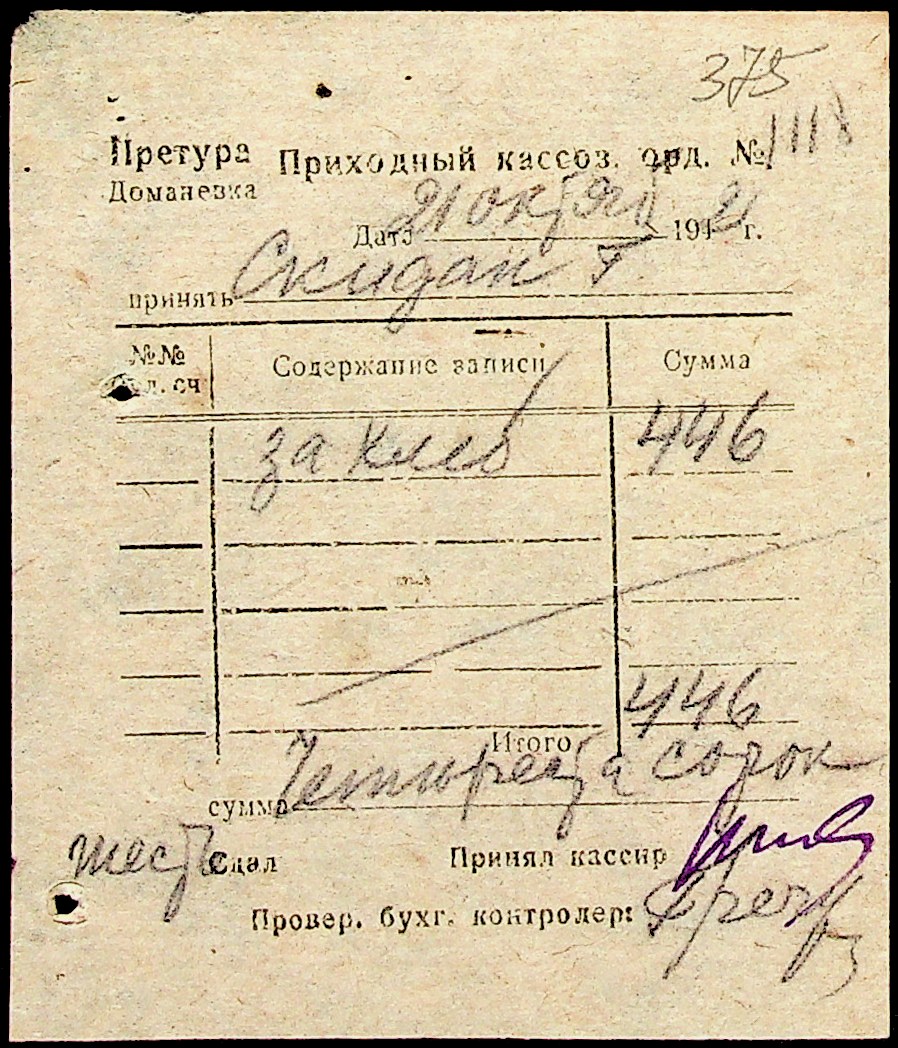 375
Претура Приходный кассов. орд. № 1118
Доманевка
Дата 21 октября 1942 г.
принять Скидан Г.
№№ Содержание записи Сумма
л. сч
за хлеб 446
Итого 446
сумма Четыреста сорок
шесть Сдал Принял кассир
Провер. бухг. контролер: